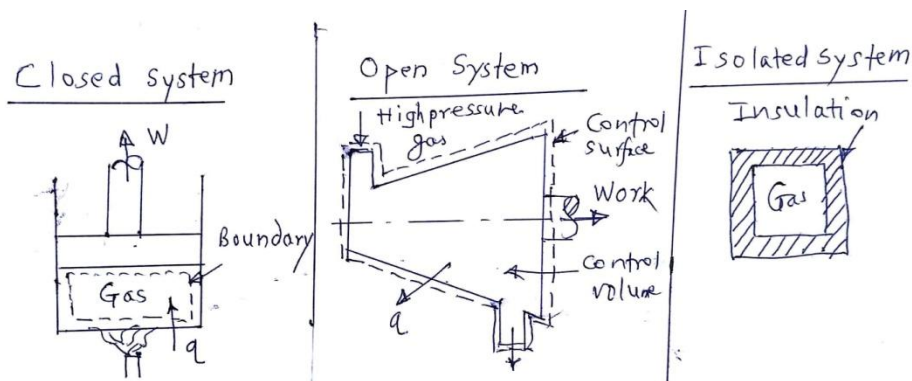 Closed system
W
Boundary
Gas
q
Open System
High pressure
gas
Control
surface
Work
Control
volume
q
Isolated system
Insulation
Gas